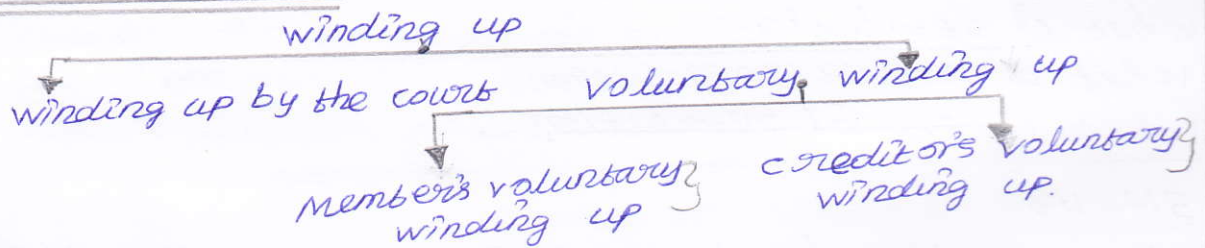 winding up
winding up by the court voluntary winding up
Member's voluntary
winding up
creditor's voluntary
winding up.